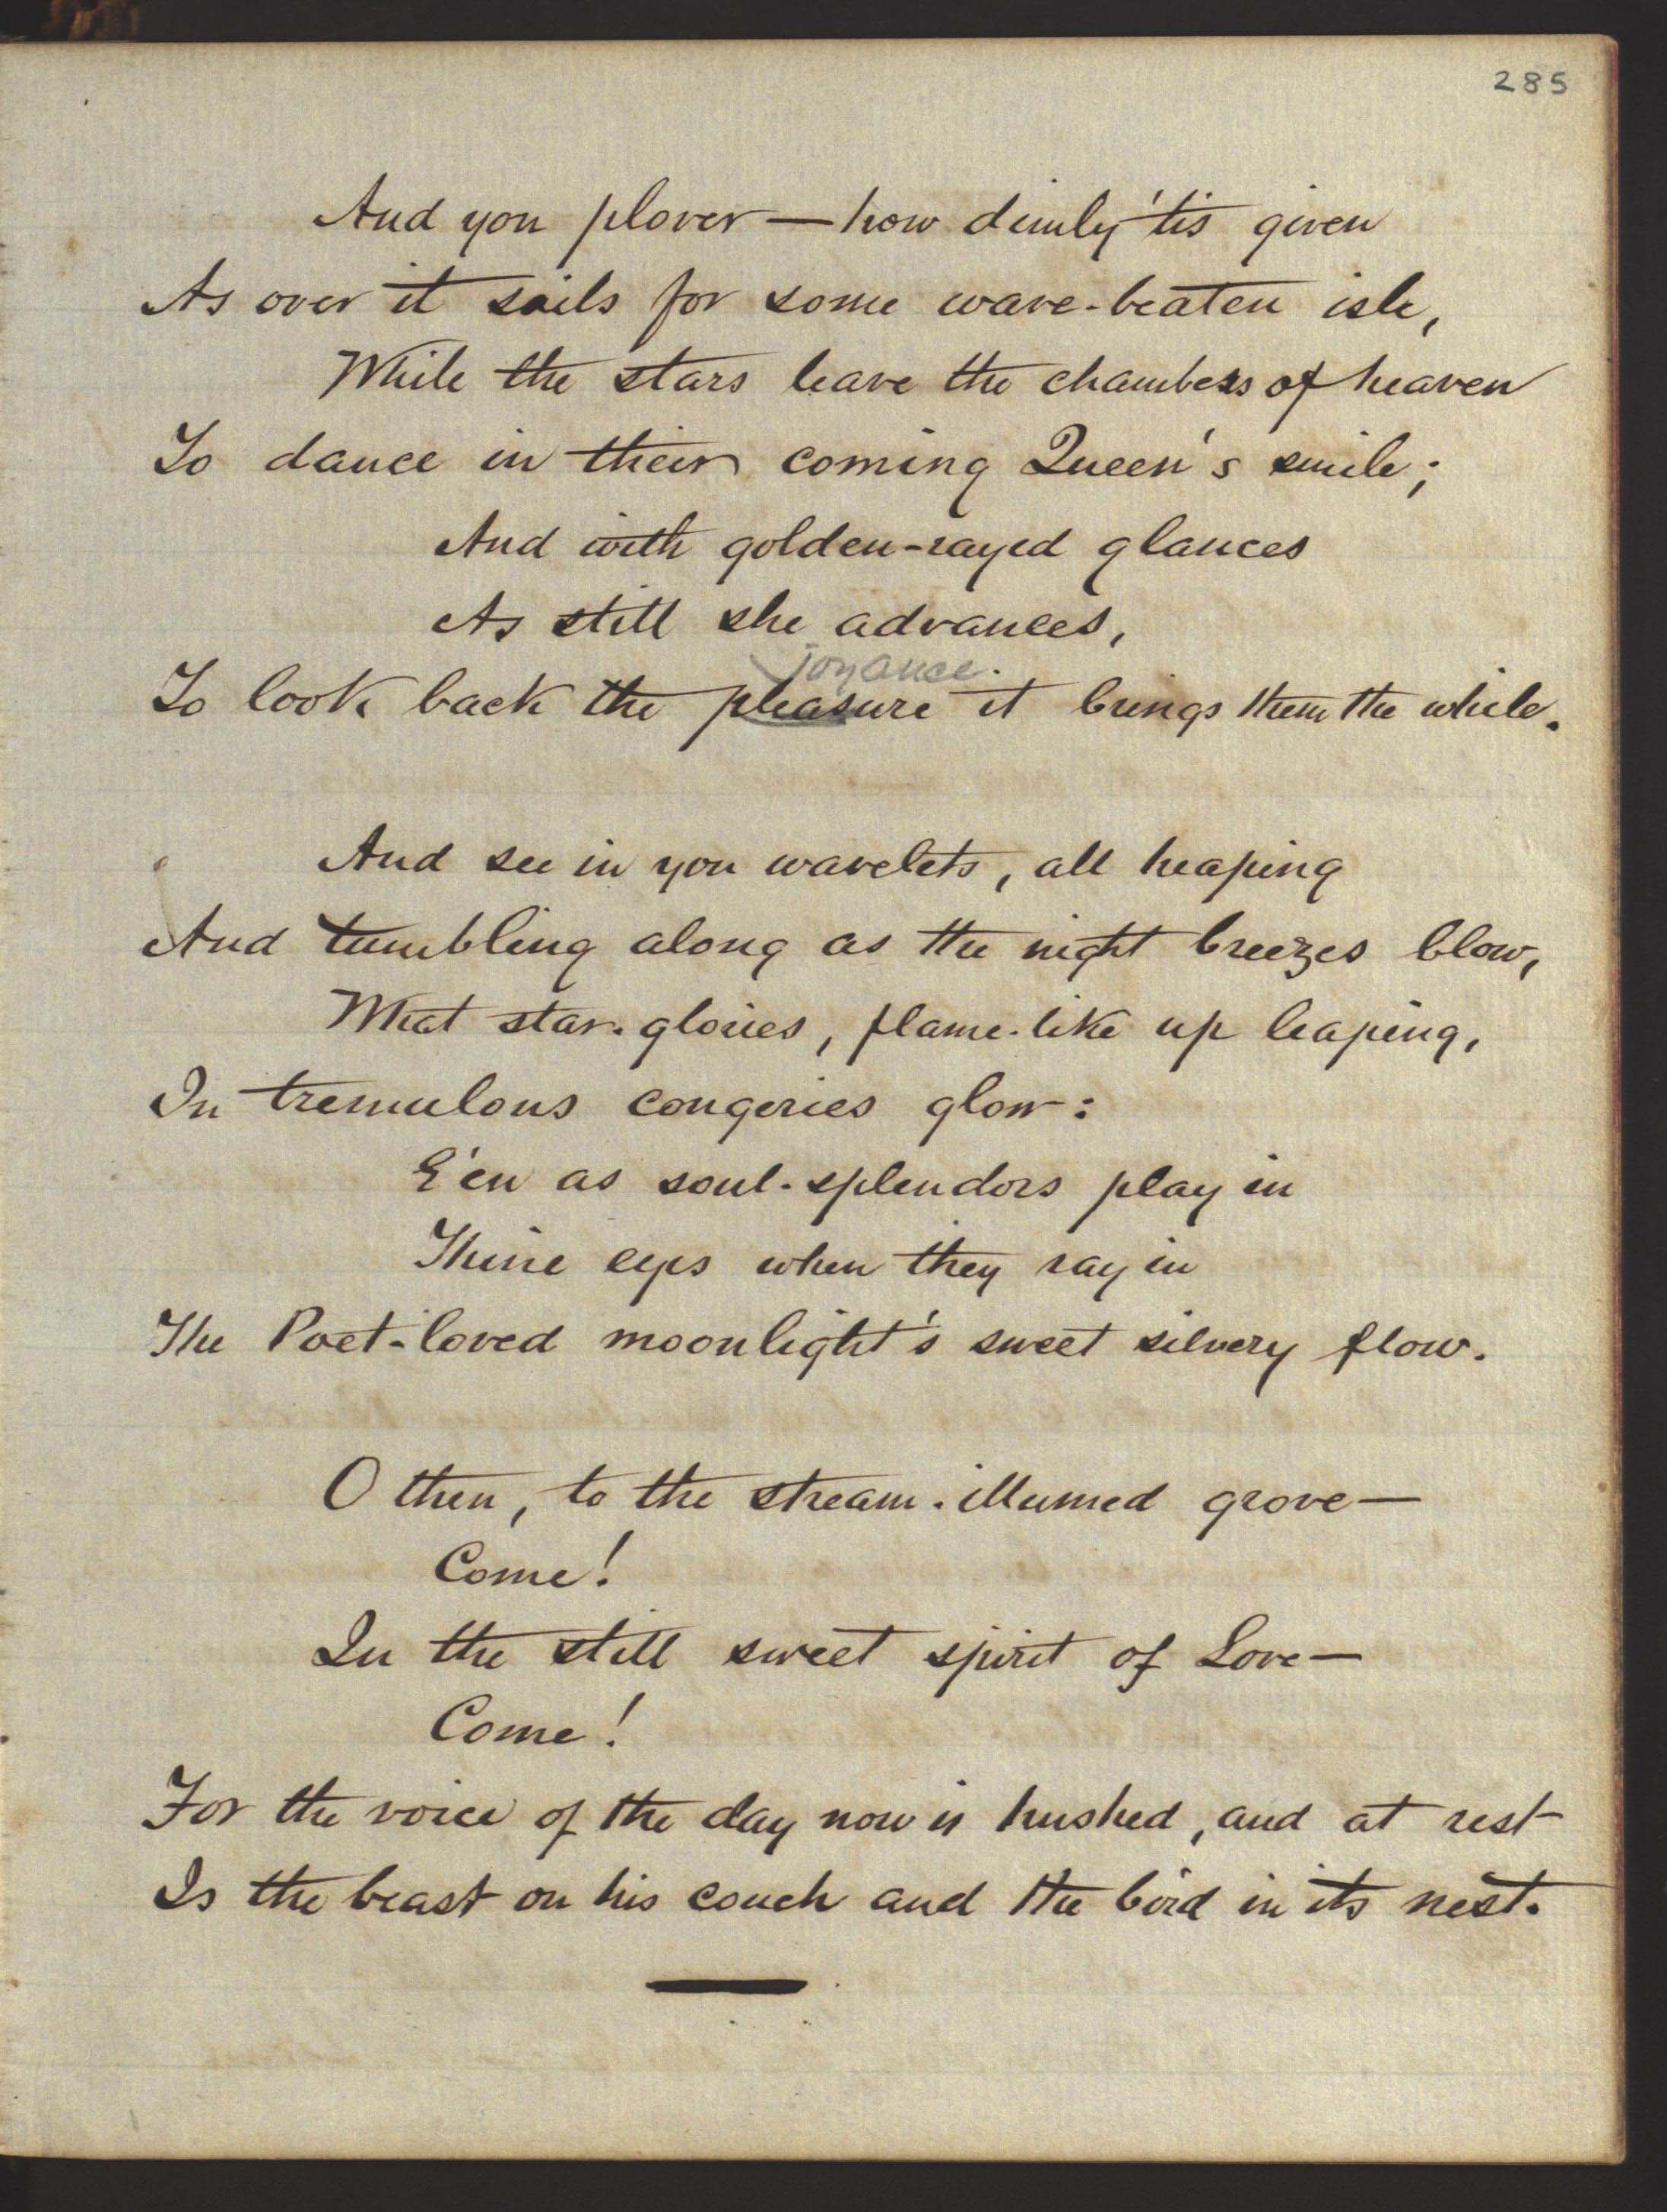 285
And yon plover — how dimly 'tis given
As over it sails for some wave-beaten isle,
While the stars leave the chambers of heaven
To dance in their coming Queen's smile;
And with golden-rayed glances
As still she advances,
joyance.
To look back the pleasure it brings them the while.
And see in yon wavelets, all heaping
And tumbling along as the night breezes blow,
What star-glories, flame-like up leaping,
In tremulous congeries glow:
E'en as soul-splendors play in
Thine eyes when they ray in
The Poet-loved moonlight's sweet silvery flow.
O then, to the stream-illumed grove —
Come!
In the still sweet spirit of Love —
Come!
For the voice of the day now is hushed, and at rest
Is the beast on his couch and the bird in its nest.